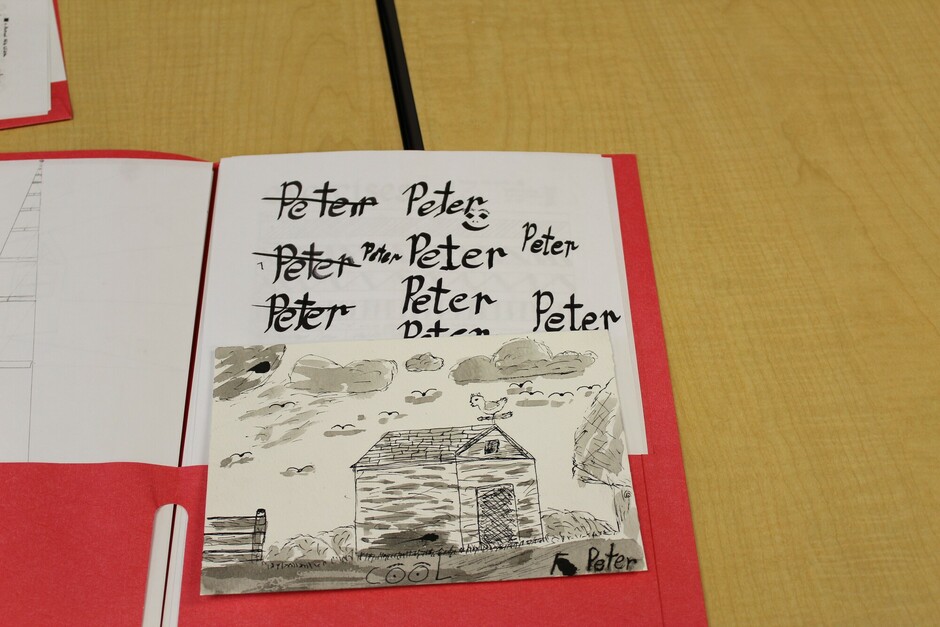 Peter Peter
Peter Peter Peter Peter
Peter Peter Peter
Peter
COOL
Peter